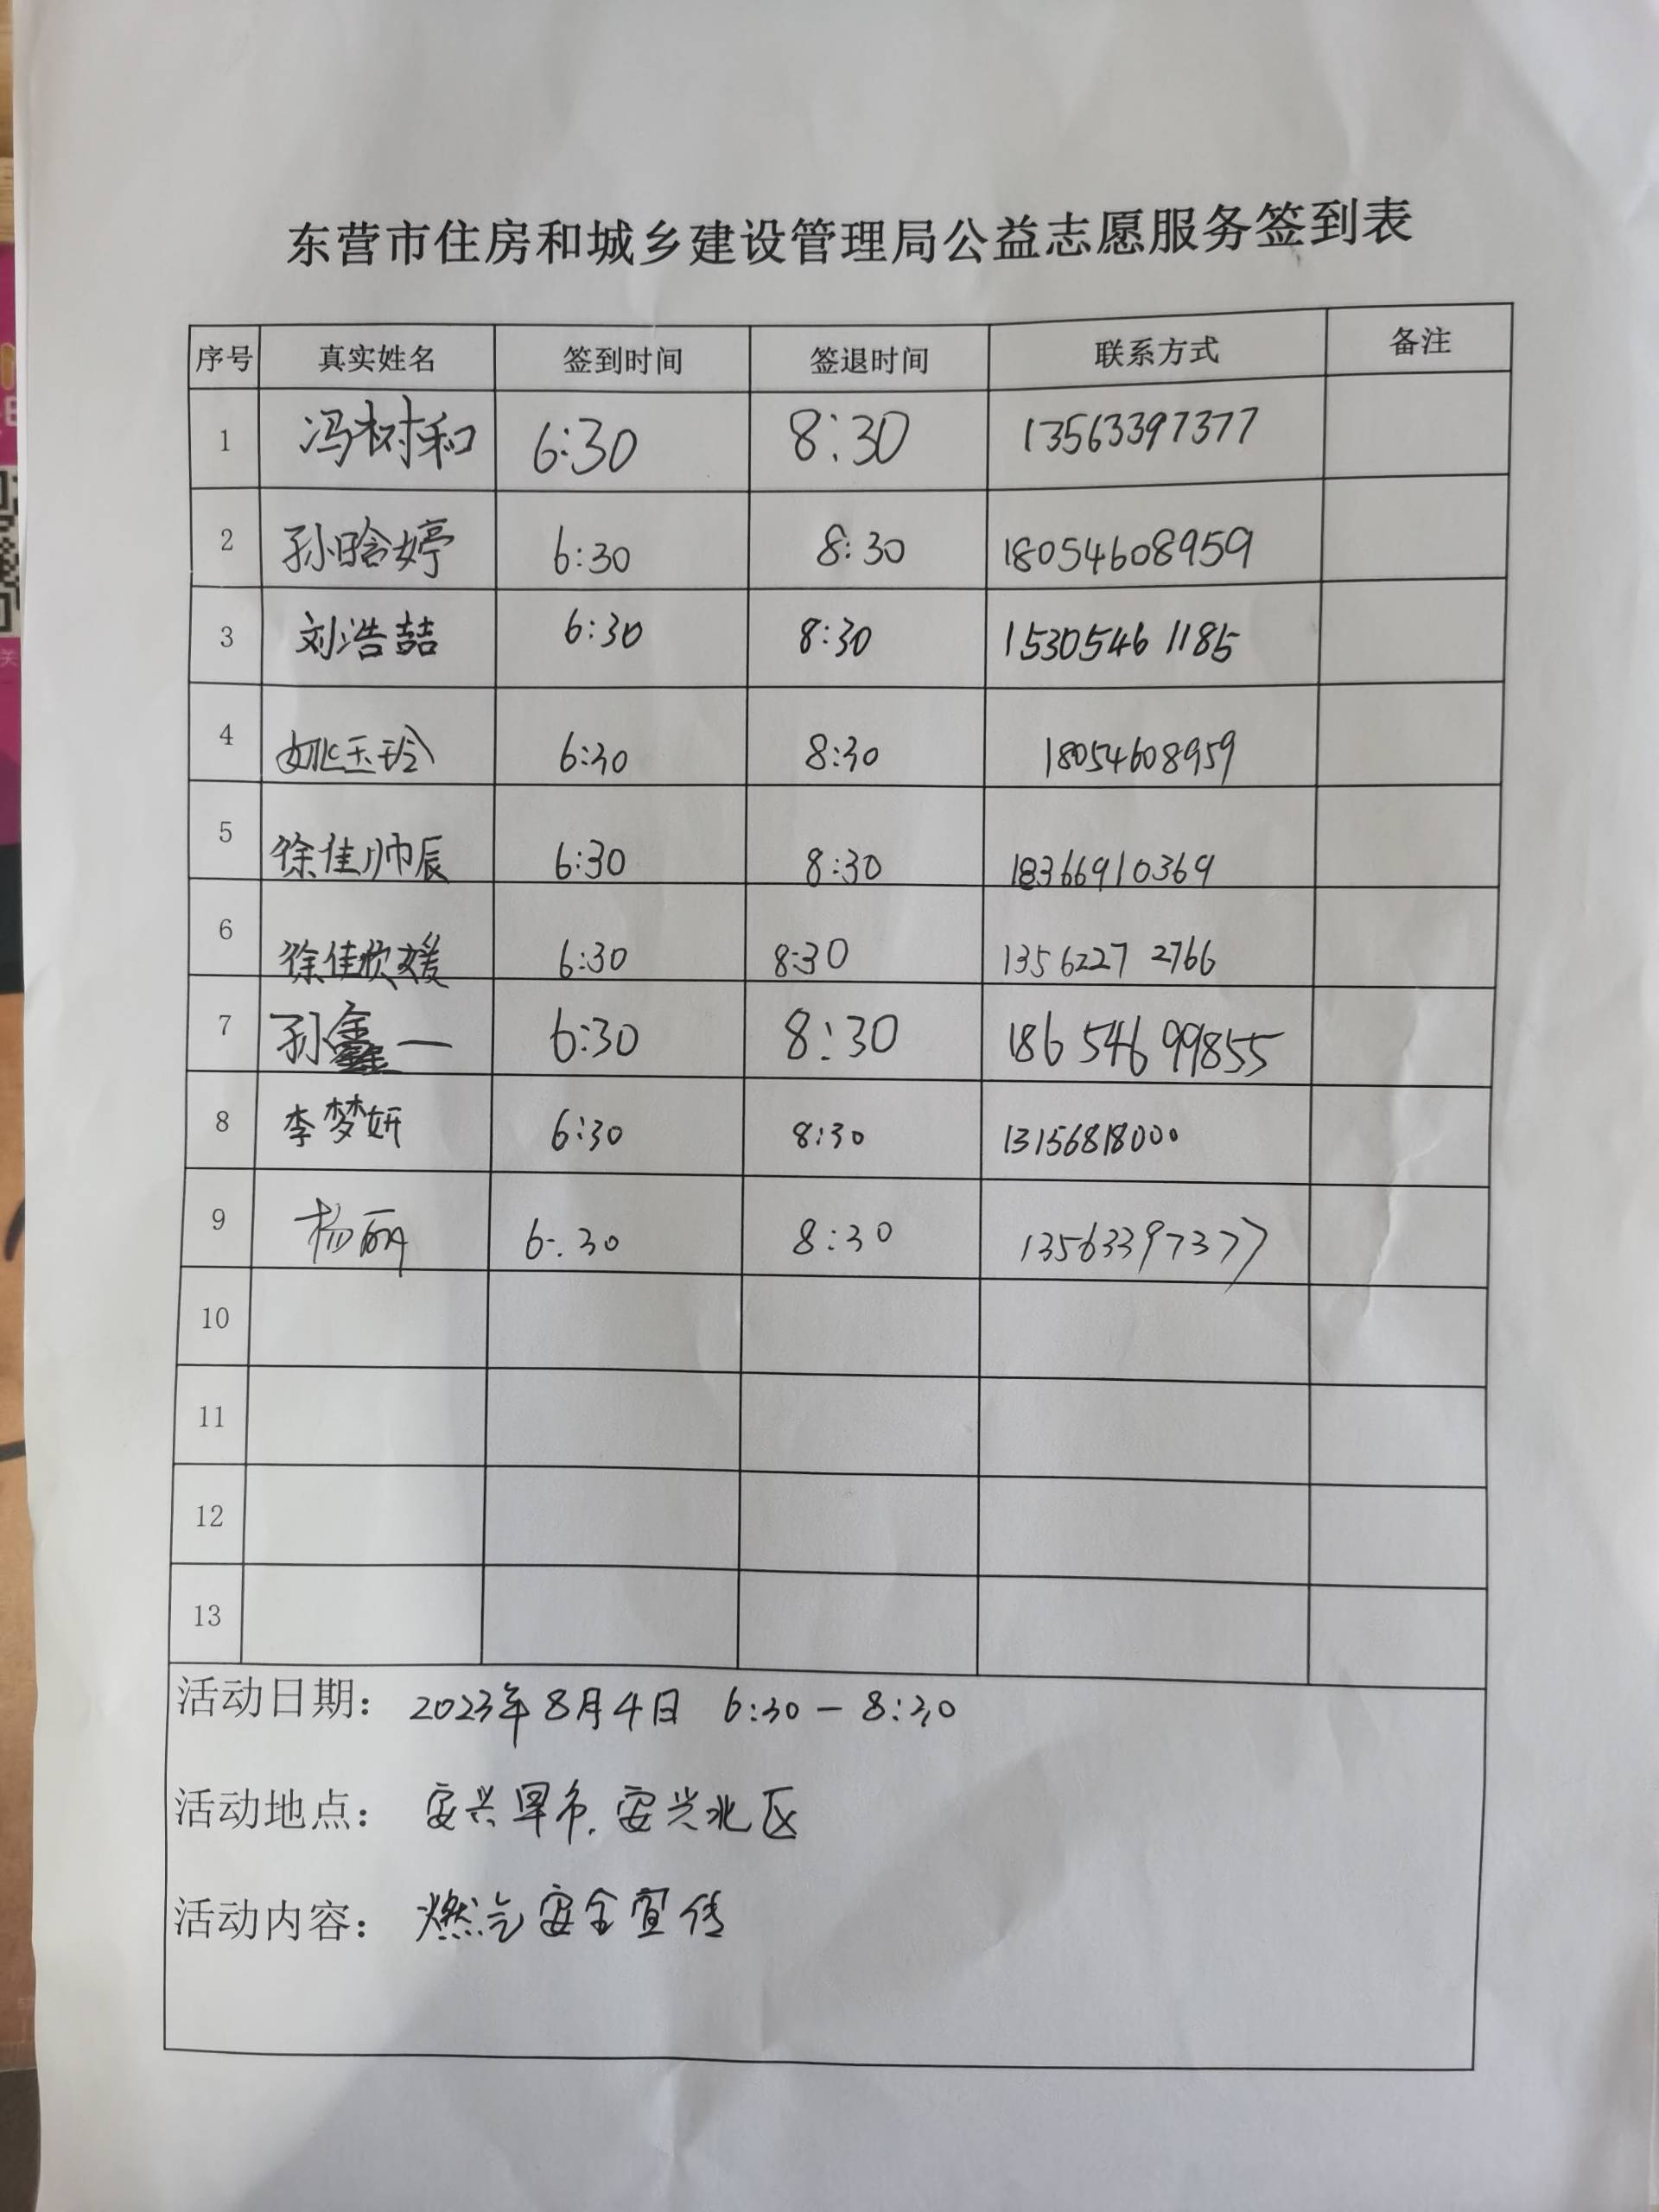 东营市住房和城乡建设管理局公益志愿服务签到表
序号 真实姓名 签到时间 签退时间 联系方式 备注
1 冯树和 6:30 8:30 13563397377
2 孙晗婷 6:30 8:30 18054608959
3 刘浩喆 6:30 8:30 15305461185
4 姚玉玲 6:30 8:30 18054608959
5 徐佳帅辰 6:30 8:30 18366910369
6 徐佳欣媛 6:30 8:30 13562272766
7 孙鑫一 6:30 8:30 18654699855
8 李梦妍 6:30 8:30 13156818000
9 杨丽 6:30 8:30 13563397377
10
11
12
13
活动日期： 2023年8月4日 6:30-8:30
活动地点： 安兴早市.安兴北区
活动内容： 燃气安全宣传